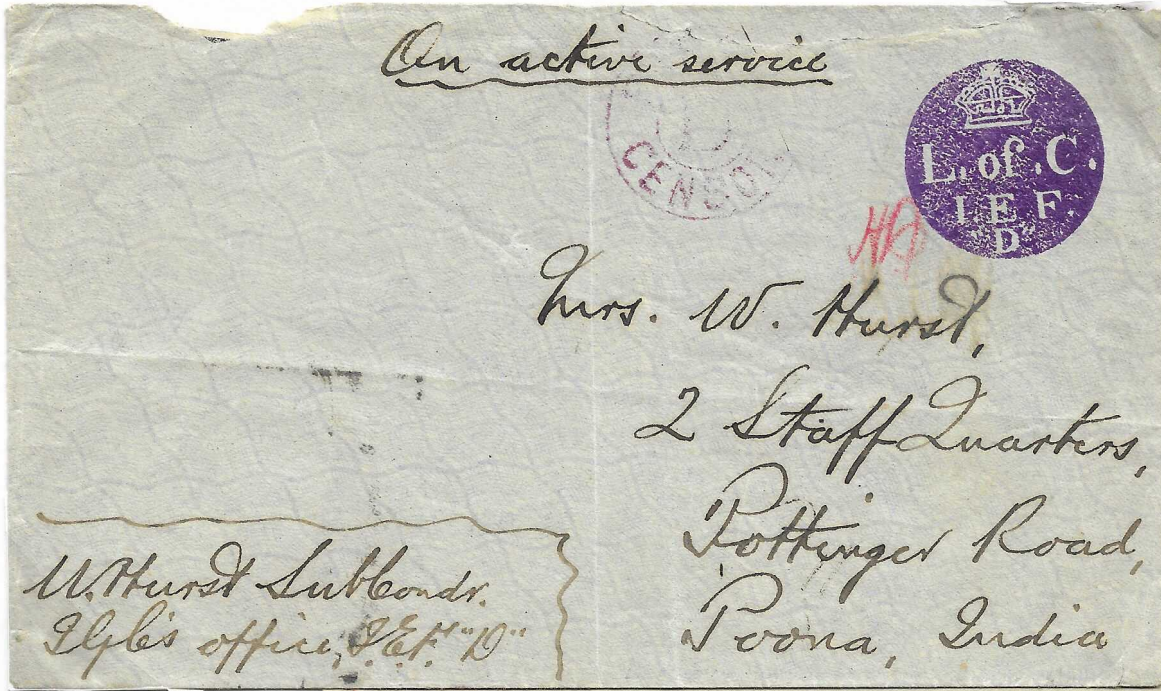 On active service
L. of .C.
I. E. F.
"D"
CENSOR
Mrs. W. Hurst,
2 Staff Quarters,
Pottinger Road,
Poona, India
W. Hurst SubCondr.
office, I.E.F. "D"